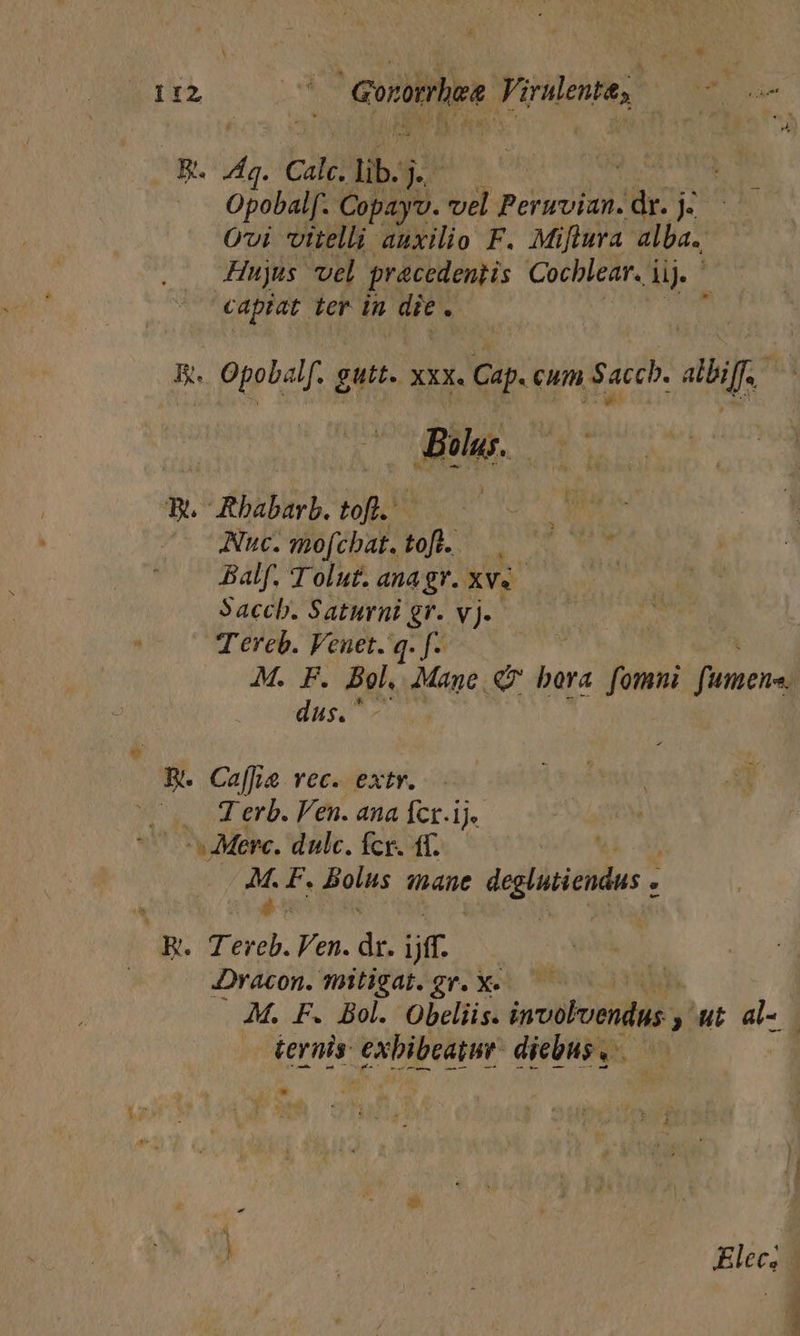 112 Gonorrhœæ Virulentæ,
℞. Aq. Calc. lib. j.
Opobalſ. Copayv. vel Peruvian. dr. j.
Ovi vitelli auxilio F. Miſtura alba.
Hujus vel præcedentis Cochlear. iij.
capiat ter in die.
℞. Opobalſ. gutt. xxx. Cap. cum Sacch. albiſſ.
Bolus.
℞. Rhabarb. toſt.
Nuc. moſchat. toſt.
Balſ. Tolut. ana gr. xv.
Sacch. Saturni gr. vj.
Tereb. Venet. q. ſ.
M. F. Bol. Mane & hora ſomni ſumen-
dus.
℞. Caſſiæ rec. extr.
Terb. Ven. ana ſcr. ij.
Merc. dulc. ſcr. ſſ.
M. F. Bolus mane deglutiendus.
℞. Tereb. Ven. dr. ijſſ.
Dracon. mitigat. gr. x.
M. F. Bol. Obeliis. involvendus, ut al-
ternis exhibeatur diebus.
Elec.